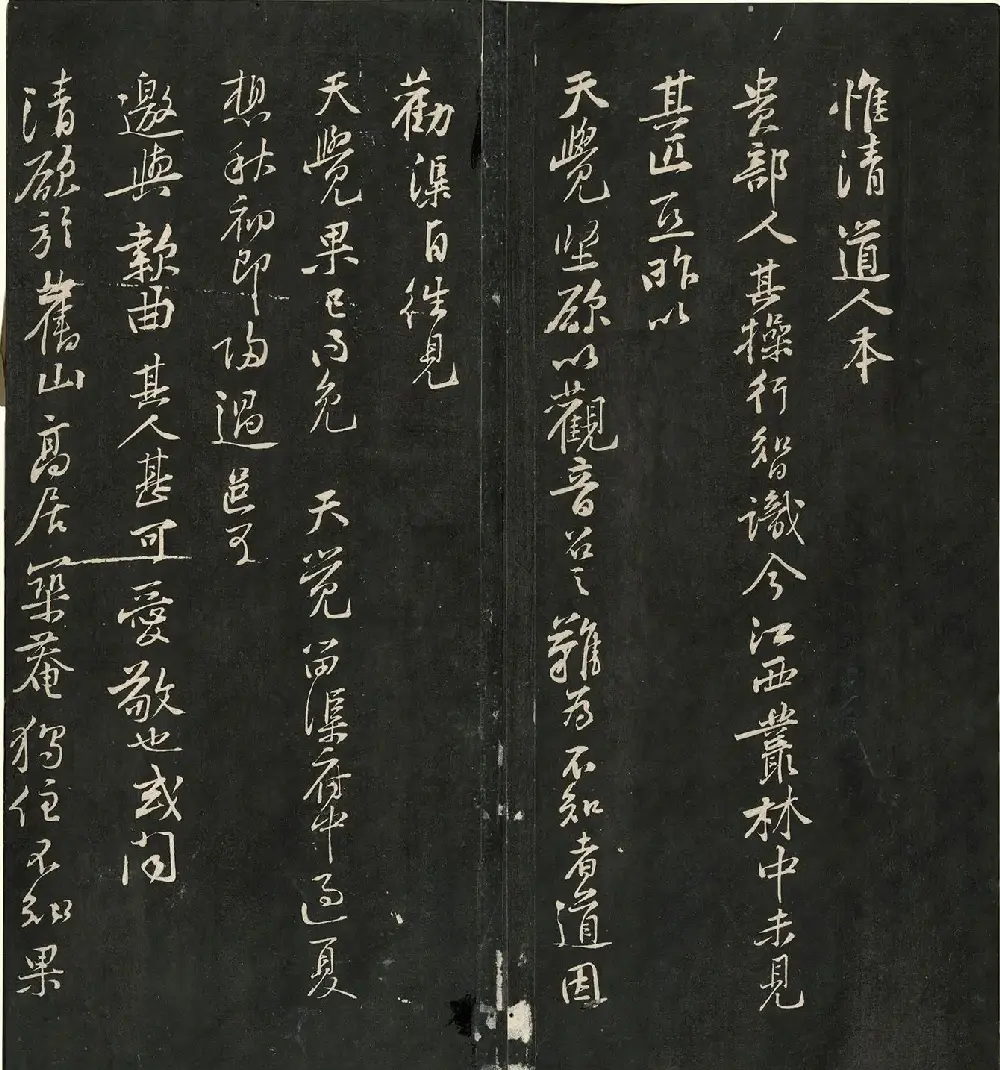 惟清道人本
貴部人其操行智識今江西叢林中未見
其匹亟昨以
天覺堅欲以觀音召之難為不知者道因
勸渠自往見
天覺果已得免 天覺留渠府中過夏
想秋初即歸過邑可
邀與款曲其人甚可愛敬也或聞
清欲於舊山高居築菴獨住不知果